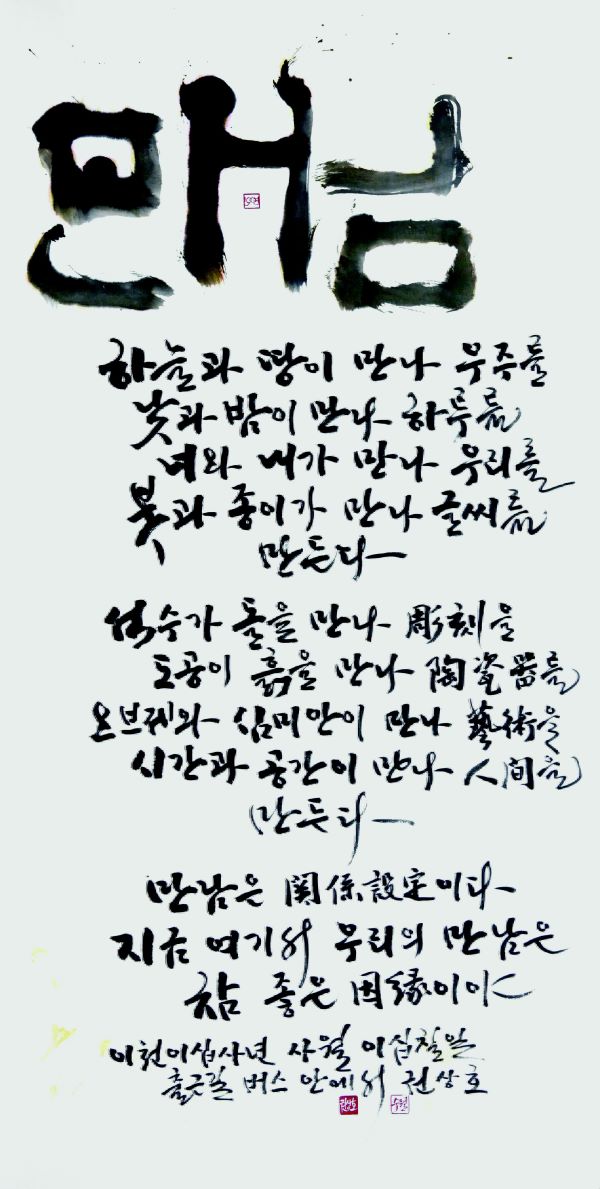 만남
하늘과 땅이 만나 우주를
낮과 밤이 만나 하루를
너와 내가 만나 우리를
붓과 종이가 만나 글씨를
만든다
석수가 돌을 만나 彫刻을
도공이 흙을 만나 陶瓷器를
오브제와 심미안이 만나 藝術을
시간과 공간이 만나 人間을
만든다
만남은 関係設定이다
지금 여기서 우리의 만남은
참 좋은 因縁이야
이천이십사년 사월 이십칠일
출근길 버스 안에서 권상호